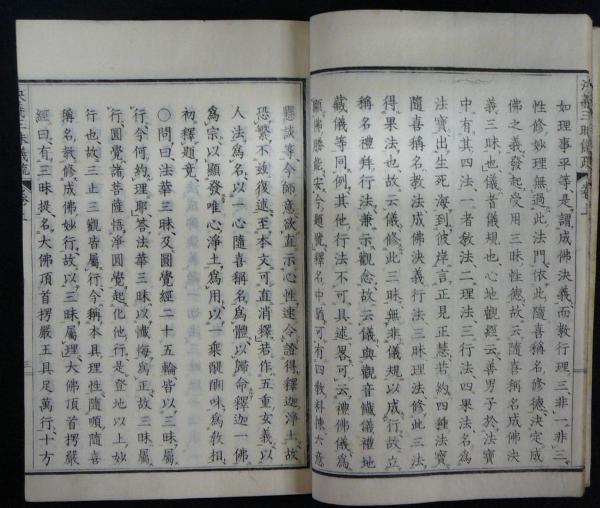 如理事平等是謂成佛決義而教行理三非一非三
性修妙理無過此法門依此隨喜稱名修德決定成
佛之義發起受用三昧性德故云隨喜稱名成佛決
義三昧也儀者儀規也心地觀經云善男子於法寶
中有其四法一者教法二理法三行法四果法名爲
法寶出生死海到彼岸言正見正慧若約四種法寶
隨喜稱名教法成佛決義行法三昧理法修此三法
得果法也故云儀修此三昧無非儀規以成行故立
稱名行法兼示觀念故云儀與觀音懺儀禮地
藏儀等同例其他行法不可具述畧可云禮佛儀爲
顯佛勝能安今題號釋名中猶可有四教料揀六意
懸談等今師意欲直示心性速令證得釋迦淨土故
恐繁不復述至本文可直消釋若作五重玄義以
人法爲名以一心隨喜稱名爲體以歸命釋迦一佛
爲宗以顯發唯心淨土爲用以一乘醍醐味爲教相
初釋題竟
○問曰法華三昧及圓覺經二十五輪皆以三昧屬
行今何約理耶答法華三昧以懺悔爲正故三昧屬
行圓覺諸菩薩悟淨圓覺起化他行是登地以上妙
行也故三止三觀皆屬行今稱本具理性隨順隨喜
稱名教修成佛妙行故以三昧屬理大佛頂首楞嚴
經曰有三昧提名大佛頂首楞嚴王具足萬行十方